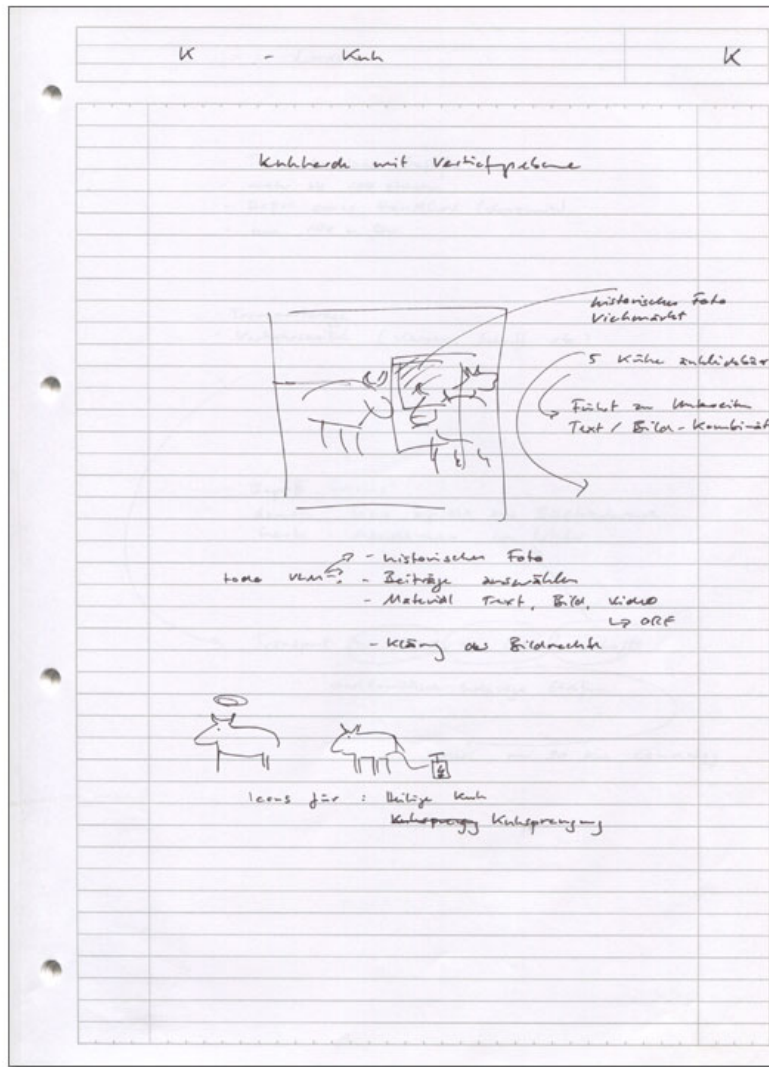 K - Kuh K
Kuhherde mit Vertiefgsebene
historisches Foto
Viehmarkt
5 Kühe anklickbar
Führt zu Unterseiten
Text / Bild-Kombinat
- historisches Foto
todo VLM-? - Beiträge auswählen
- Material Text, Bild, Video
↳ ORF
- Klärung der Bildrechte
Icons für : Heilige Kuh
Kuhsprengung